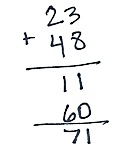 23
+ 48
11
60
71